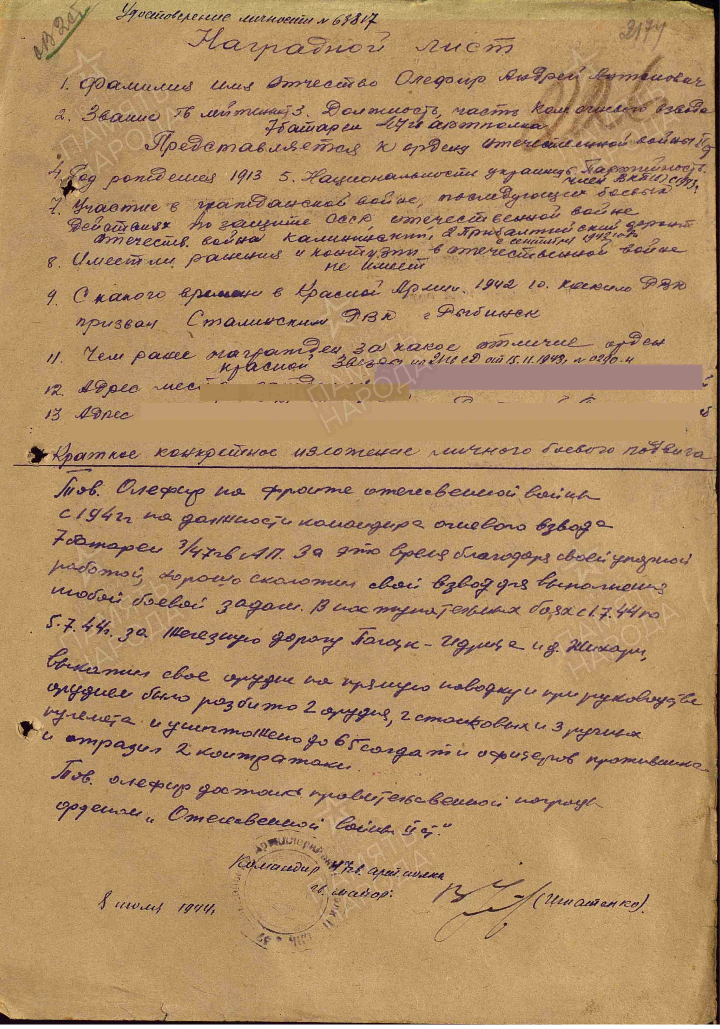 Удостоверение личности № 63817
Наградной лист
1. Фамилия имя отчество Олефир Андрей Антонович
2. Звание гв лейтенант 3. Должность, часть командир огневого взвода
7 батареи 47 гв артполка
Представляется к ордену отечественной войны II ст
4. Год рождения 1913 5. Национальность украинец Партийность
член ВКП(б) с 1943г.
7. Участие в гражданской войне, последующих боевых
действиях по защите СССР отечественной войне
отечеств. война Калининский, 2 Прибалтийский фронт
с сентября 1942 года
8. Имеет ли ранения и контузии в отечественной войне
не имеет
9. С какого времени в Красной Армии. 1942 10. каким РВК
призван Сталинским РВК г. Рыбинск
11. Чем ранее награжден за какое отличие орден
красной Звезда от 15.11.1943г № 0290-н
12. Адрес
13 Адрес
Краткое конкретное изложение личного боевого подвига
Тов. Олефир на фронте отечественной войны
с 1942г на должности командира огневого взвода
7 батареи 3/47 гв АП. За это время благодаря своей упорной
работой хорошо сколотил свой взвод для выполнения
любой боевой задачи. В наступательных боях с 1.7.44 по
5.7.44г. за железную дорогу - Идрица и д. Жихари,
выкатил свое орудие на прямую наводку и при руководстве
орудием было разбито 2 орудия, 2 станковых и 3 ручных
пулемета и уничтожено до 65 солдат и офицеров противника
и отразил 2 контратаки.
Тов. Олефир достоин правительственной награды
орденом „Отечественной войны II ст."
Командир 47 гв. артполка
гв. майор: (Игнатенко).
8 июля 1944г.
ПАМЯТЬ НАРОДА